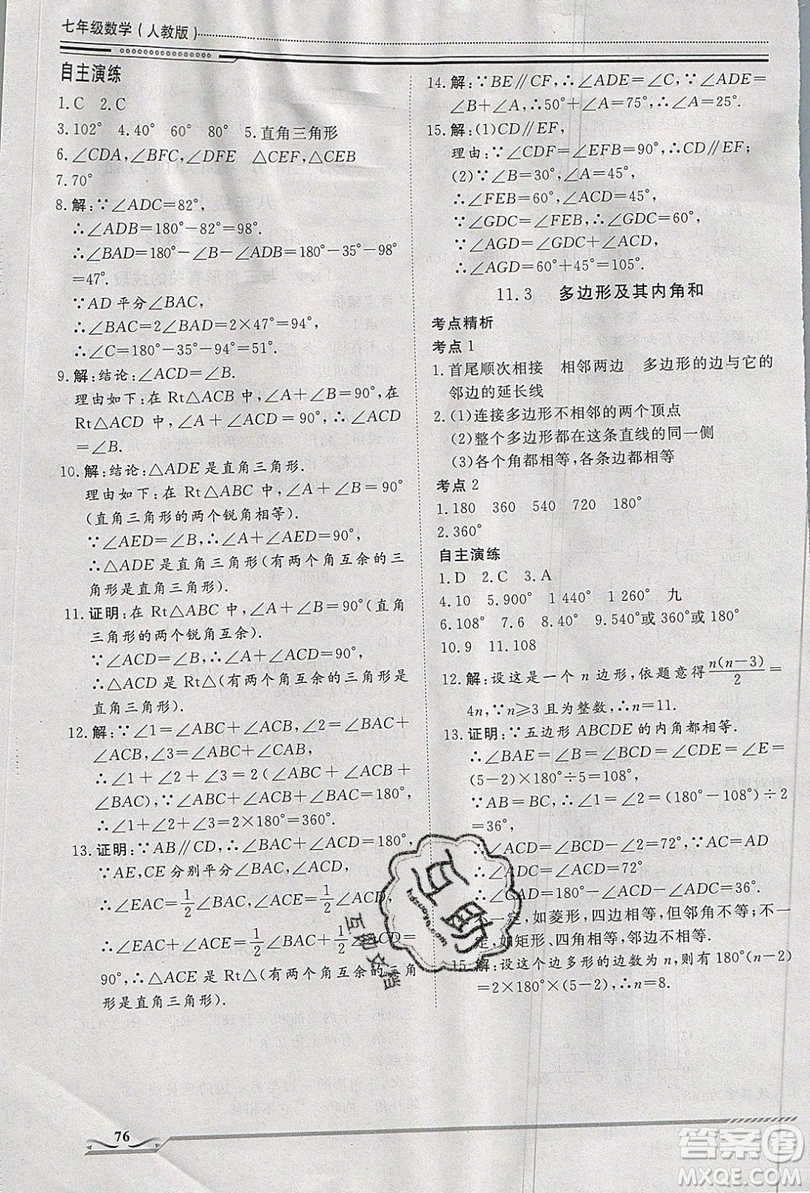 七年级数学(人教版)
自主演练
1.C 2.C
3.102° 4.40° 60° 80° 5.直角三角形
6.∠CDA,∠BFC,∠DFE △CEF,△CEB
7.70°
8.解:∵∠ADC=82°,
∴∠ADB=180°-82°=98°.
∴∠BAD=180°-∠B-∠ADB=180°-35°-98°
=47°.
∵AD平分∠BAC,
∴∠BAC=2∠BAD=2×47°=94°,
∴∠C=180°-35°-94°=51°.
9.解:结论:∠ACD=∠B.
理由如下:在Rt△ABC中,∠A+∠B=90°,在
Rt△ACD中,∠A+∠ACD=90°,∴∠ACD
=∠B.
10.解:结论:△ADE是直角三角形.
理由如下:在Rt△ABC中,∠A+∠B=90°
(直角三角形的两个锐角相等).
∵∠AED=∠B,∴∠A+∠AED=90°.
∴△ADE是直角三角形(有两个角互余的三
角形是直角三角形).
11.证明:在Rt△ABC中,∠A+∠B=90°(直角
三角形的两个锐角互余).
∵∠ACD=∠B,∴∠A+∠ACD=90°.
∴△ACD是Rt△(有两个角互余的三角形是
直角三角形).
12.解:∵∠1=∠ABC+∠ACB,∠2=∠BAC+
∠ACB,∠3=∠ABC+∠CAB,
∴∠1+∠2+∠3=2(∠BAC+∠ACB+
∠ABC),∵∠BAC+∠ACB+∠ABC=180°,
∴∠1+∠2+∠3=2×180°=360°.
13.证明:∵AB∥CD,∴∠BAC+∠ACD=180°,
∵AE,CE分别平分∠BAC,∠ACD,
∴∠EAC=1/2∠BAC,∠ACE=1/2∠ACD,
∴∠EAC+∠ACE=1/2(∠BAC+∠ACD)=
90°,∴△ACE是Rt△(有两个角互余的三角
形是直角三角形).
14.解:∵BE∥CF,∴∠ADE=∠C,∵∠ADE=
∠B+∠A=50°+∠A=75°,∴∠A=25°.
15.解:(1)CD∥EF,
理由:∵∠CDF=∠EFB=90°,∴CD∥EF;
(2)∵∠B=30°,∠A=45°,
∴∠FEB=60°,∠ACD=45°,
∵∠GDC=∠FEB,∴∠GDC=60°,
∵∠AGD=∠GDC+∠ACD,
∴∠AGD=60°+45°=105°.
11.3 多边形及其内角和
考点精析
考点1
1.首尾顺次相接 相邻两边 多边形的边与它的
邻边的延长线
2.(1)连接多边形不相邻的两个顶点
(2)整个多边形都在这条直线的同一侧
(3)各个角都相等,各条边都相等
考点2
1.180 360 540 720 180°
2.360°
自主演练
1.D 2.C 3.A
4.10 5.900° 1 260° 1 260° 九
6.108° 7.6 8.90° 9.540°或360°或180°
10.9 11.108
12.解:设这是一个n边形,依题意得n(n-3)/2=
4n,∵n≥3且为整数,∴n=11.
13.证明:∵五边形ABCDE的内角都相等,
∴∠BAE=∠B=∠BCD=∠CDE=∠E=
(5-2)×180°÷5=108°,
∵AB=BC,∴∠ACB=(180°-108°)÷2
=36°,
∴∠ACD=∠BCD-∠ACB=72°,∵AC=AD
∴∠ADC=∠ACD=72°
∠CAD=∠ADC=36°.
一定,如菱形,四边相等,但邻角不相等;不一
定,如矩形、四角相等,邻边不相等.
15.解:设这个边多形的边数为n,则180°(n-2)
=2×180°(5-2),∴n=8.
互助
互助文档
76
答案圈
MXQE.COM